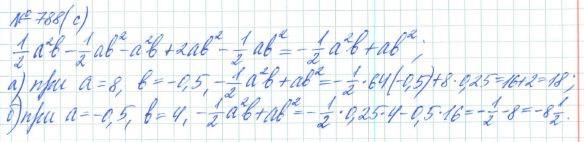 № 788(с)
1/2 a²b - 1/2 ab² - a²b + 2ab² - 1/2 ab² = - 1/2 a²b + ab²;
а) при a = 8, b = -0,5, - 1/2 a²b + ab² = - 1/2 · 64(-0,5) + 8 · 0,25 = 16 + 2 = 18;
б) при a = -0,5, b = 4, - 1/2 a²b + ab² = - 1/2 · 0,25 · 4 - 0,5 · 16 = - 1/2 - 8 = -8 1/2.